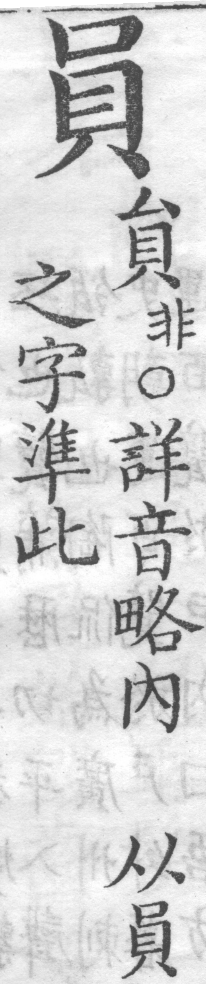 員
貟非○詳音略內　从員
之字準此